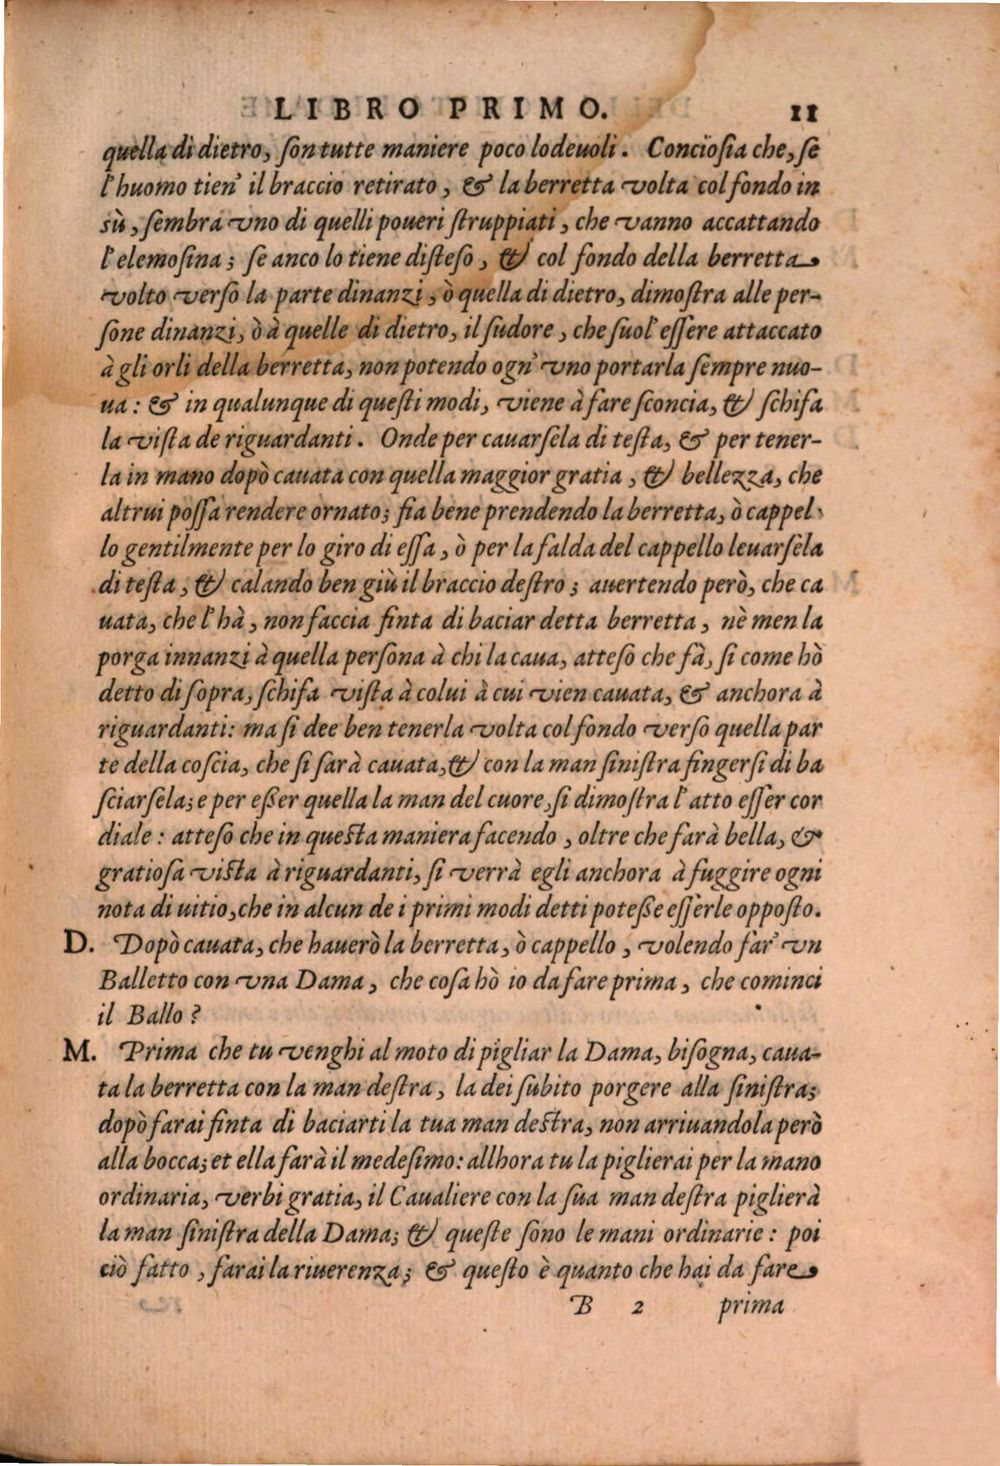 LIBRO PRIMO. 11
quella di dietro, ſon tutte maniere poco lodeuoli. Concioſia che, ſe
l'huomo tien' il braccio retirato, & la berretta volta col fondo in
sù, ſembra vno di quelli poueri ſtruppiati, che vanno accattando
l'elemoſina; ſe anco lo tiene diſteſo, & col fondo della berretta
volto verſo la parte dinanzi, ò quella di dietro, dimoſtra alle per-
ſone dinanzi, ò à quelle di dietro, il ſudore, che ſuol' eſſere attaccato
à gli orli della berretta, non potendo ogn' vno portarla ſempre nuo-
ua: & in qualunque di queſti modi, viene à fare ſconcia, & ſchifa
la viſta de riguardanti. Onde per cauarſela di teſta, & per tener-
la in mano dopò cauata con quella maggior gratia, & bellezza, che
altrui poſſa rendere ornato; fia bene prendendo la berretta, ò cappel-
lo gentilmente per lo giro di eſſa, ò per la falda del cappello leuarſela
di teſta, & calando ben giù il braccio deſtro; auertendo però, che ca
uata, che l'hà, non faccia finta di baciar detta berretta, nè men la
porga innanzi à quella perſona à chi la caua, atteſo che fà, ſi come hò
detto di ſopra, ſchifa viſta à colui à cui vien cauata, & anchora à
riguardanti: ma ſi dee ben tenerla volta col fondo verſo quella par
te della coſcia, che ſi ſarà cauata, & con la man ſiniſtra fingerſi di ba
ſciarſela; e per eßer quella la man del cuore, ſi dimoſtra l'atto eſſer cor
diale: atteſo che in queſta maniera facendo, oltre che farà bella, &
gratioſa viſta à riguardanti, ſi verrà egli anchora à fuggire ogni
nota di uitio, che in alcun de i primi modi detti poteße eſſerle oppoſto.
D. Dopò cauata, che hauerò la berretta, ò cappello, volendo far' vn
Balletto con vna Dama, che coſa hò io da fare prima, che cominci
il Ballo?
M. Prima che tu venghi al moto di pigliar la Dama, biſogna, caua-
ta la berretta con la man deſtra, la dei ſubito porgere alla ſiniſtra;
dopò farai finta di baciarti la tua man deſtra, non arriuandola però
alla bocca; et ella farà il medeſimo: allhora tu la piglierai per la mano
ordinaria, verbi gratia, il Caualiere con la ſua man deſtra piglierà
la man ſiniſtra della Dama; & queſte ſono le mani ordinarie: poi
ciò fatto, farai la riuerenza; & queſto è quanto che hai da fare
B 2 prima